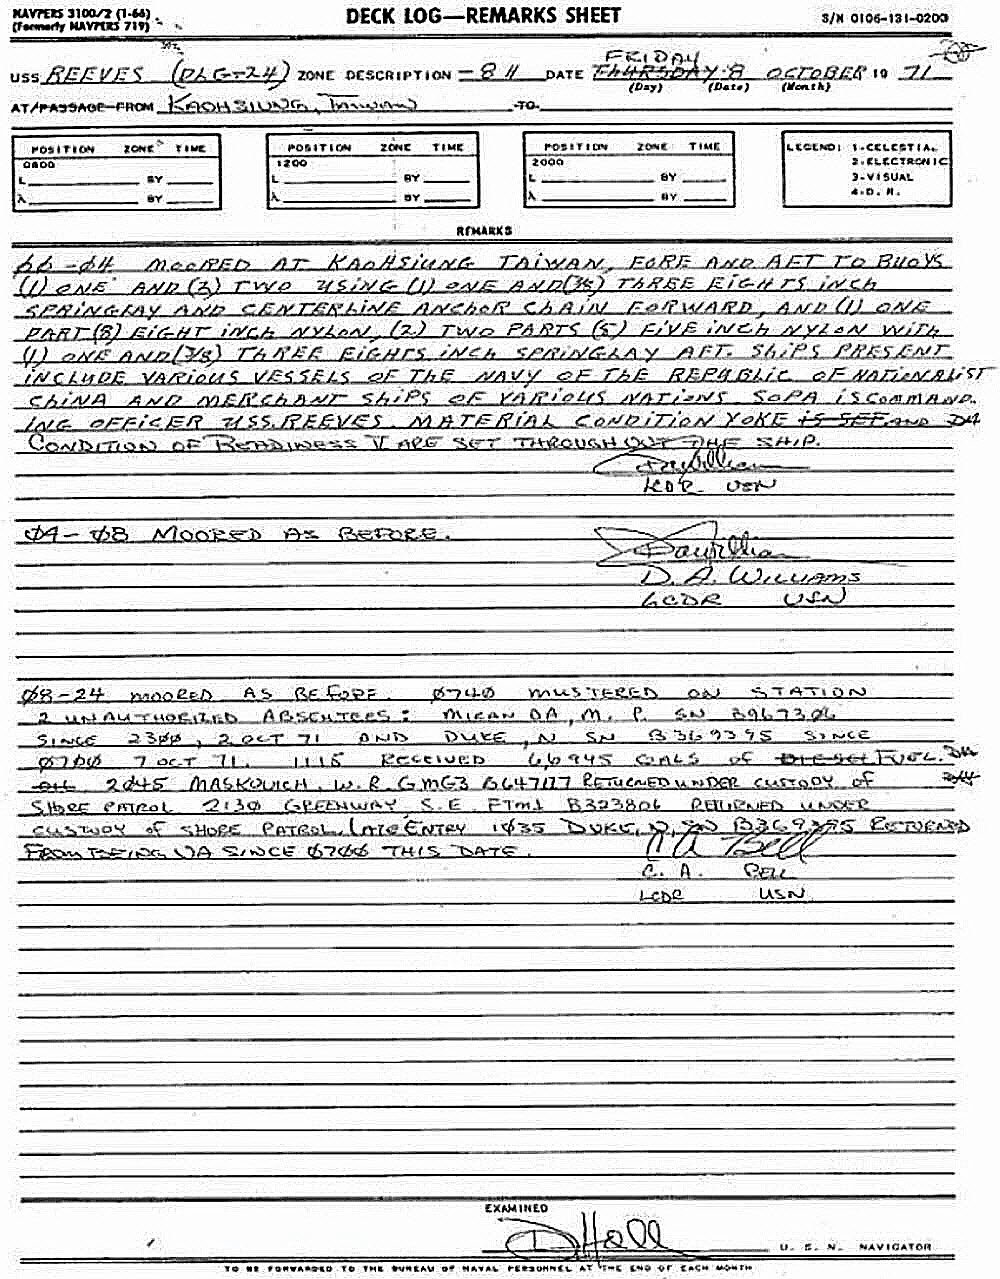 NAVPERS 3100/2 (1-66)
(Formerly NAVPERS 719)
DECK LOG—REMARKS SHEET
S/N 0106-131-0200
FRIDAY
USS REEVES (DLG-24) ZONE DESCRIPTION -8H DATE THURSDAY 8 OCTOBER 19 71
(Day) (Date) (Month)
AT/PASSAGE FROM KAOHSIUNG, TAIWAN TO
POSITION ZONE TIME POSITION ZONE TIME POSITION ZONE TIME LEGEND: 1-CELESTIAL
0800 1200 2000 2-ELECTRONIC
L BY L BY L BY 3-VISUAL
λ BY λ BY λ BY 4-D. R.
REMARKS
00-04 MOORED AT KAOHSIUNG TAIWAN, FORE AND AFT TO BUOYS
(1) ONE AND (2) TWO USING (1) ONE AND (3/8) THREE EIGHTS INCH
SPRINGLAY AND CENTERLINE ANCHOR CHAIN FORWARD, AND (1) ONE
PART (8) EIGHT INCH NYLON, (2) TWO PARTS (5) FIVE INCH NYLON WITH
(1) ONE AND (3/8) THREE EIGHTS INCH SPRINGLAY AFT. SHIPS PRESENT
INCLUDE VARIOUS VESSELS OF THE NAVY OF THE REPUBLIC OF NATIONALIST
CHINA AND MERCHANT SHIPS OF VARIOUS NATIONS. SOPA IS COMMAND-
ING OFFICER USS. REEVES. MATERIAL CONDITION YOKE IS SET AND
CONDITION OF READINESS V ARE SET THROUGH OUT THE SHIP.
LCDR USN
04-08 MOORED AS BEFORE.
D. A. WILLIAMS
LCDR USN
08-24 MOORED AS BEFORE. 0740 MUSTERED ON STATION
2 UNAUTHORIZED ABSENTEES: MIRANDA, M. P. SN B967306
SINCE 2300, 2 OCT 71 AND DUKE, N SN B369395 SINCE
0700 7 OCT 71. 1115 RECEIVED 66945 GALS OF DIESEL FUEL.
OIL 2045 MASKOVICH, W. R. GMG3 B647177 RETURNED UNDER CUSTODY OF
SHORE PATROL 2130 GREENWAY S.E. FTM1 B323806 RETURNED UNDER
CUSTODY OF SHORE PATROL. LATE ENTRY 1035 DUKE, N, SN B369395 RETURNED
FROM BEING UA SINCE 0700 THIS DATE.
C A Bell
C. A. BELL
LCDR USN
EXAMINED
D Hall
U. S. N. NAVIGATOR
TO BE FORWARDED TO THE BUREAU OF NAVAL PERSONNEL AT THE END OF EACH MONTH